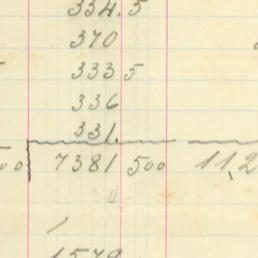 334.5
370
333 5
336
331.
00 7381 500 11,2
1579